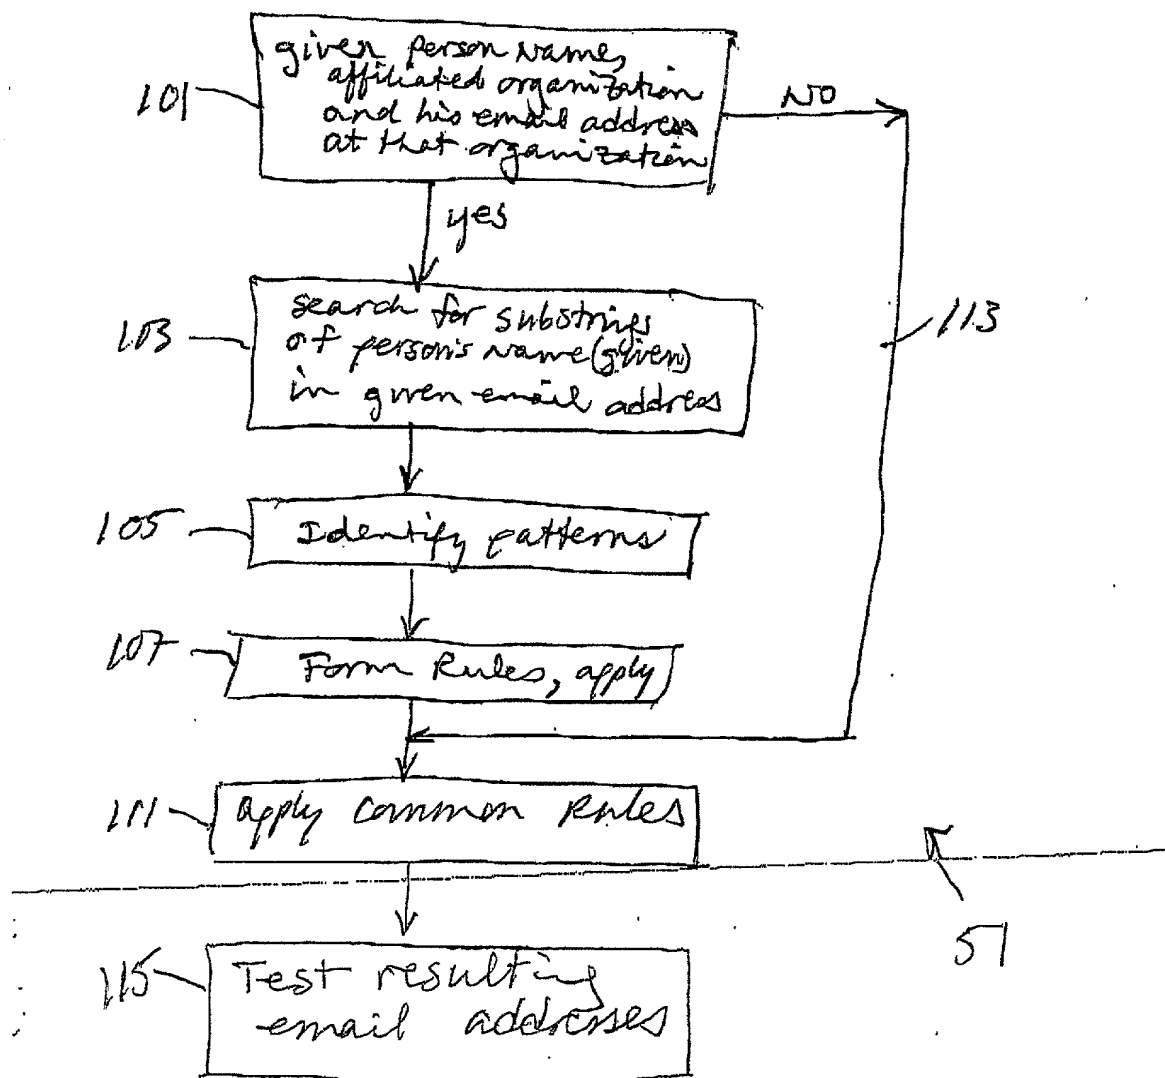 given person name,
affiliated organization
and his email address
at that organization
101
NO
yes
search for substrings
of person's name (given)
in given email address
103
113
Identify patterns
105
Form Rules, apply
107
apply common Rules
111
51
Test resulting
email addresses
115